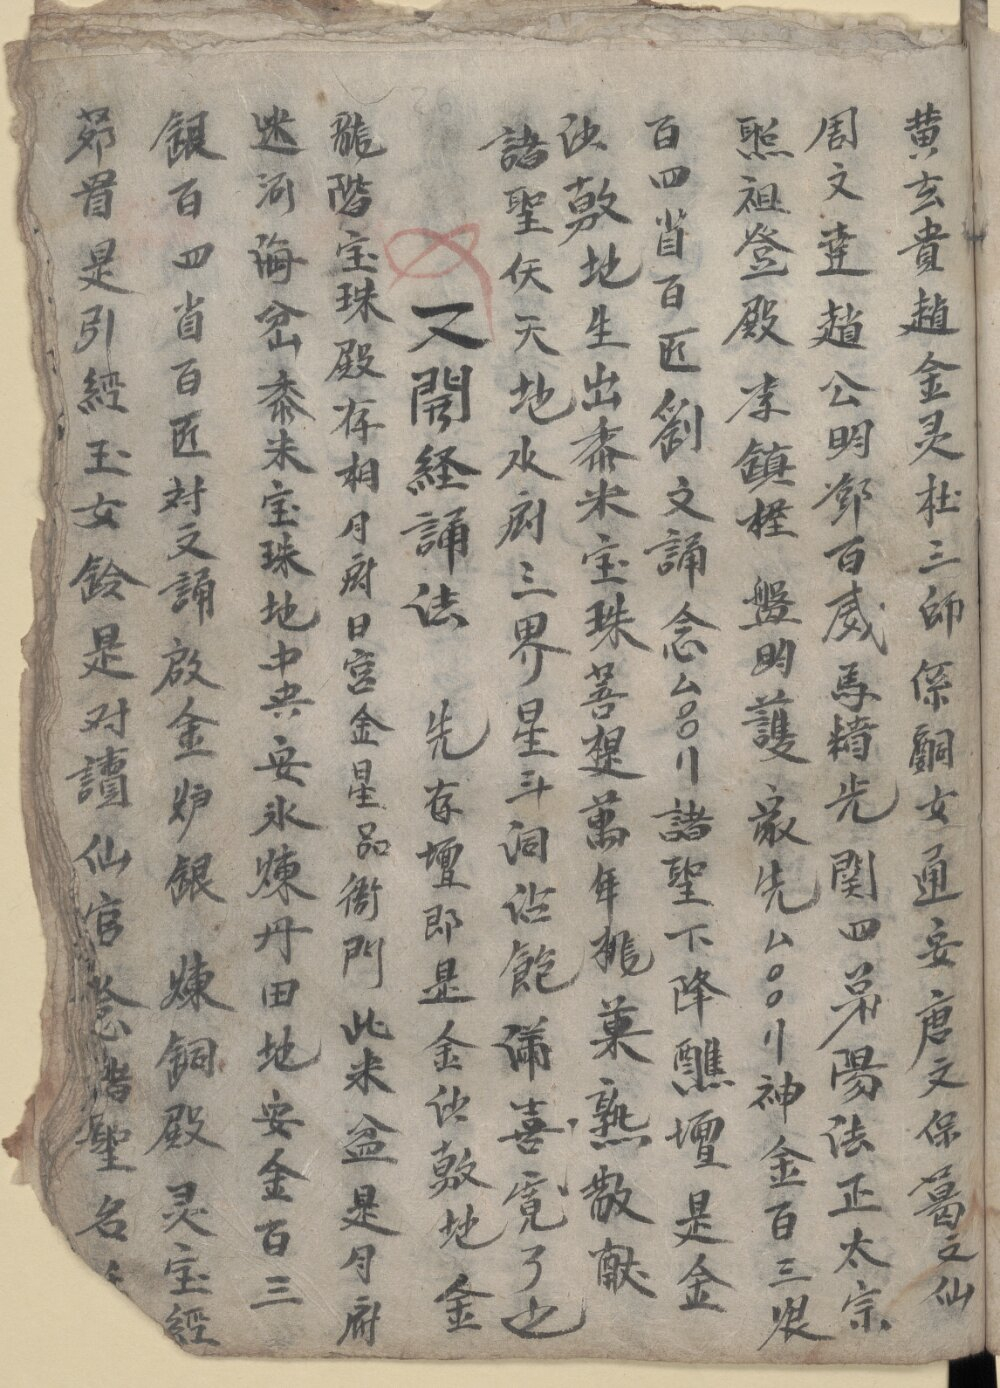 黄玄貴趙金灵杜三師係嗣女通妄唐文保葛文仙
周文達趙公明鄧百威馬精先関四弟陽法正太宗
熙祖登殿李鎮樫盤明護嚴先厶〇〇刂神金百三
百四省百匹劉文誦念厶〇〇刂諸聖下降醮壇是金
沙敷地生出黍米宝珠菩提萬年桃菓熟散献
諸聖仸天地水府三界星斗洞沾飽満喜寛了也
又開経誦法 先存壇即是金沙敷地金
龍階宝珠殿存相月府日宮金星品衙門此米盆是月府
迷河海岔黍米宝珠地中央安氷煉丹田地安金百三
銀百四省百匹対文誦啟金炉銀煉銅殿灵宝經
茆首是引經玉女鈴是对讀仙官念諸聖名